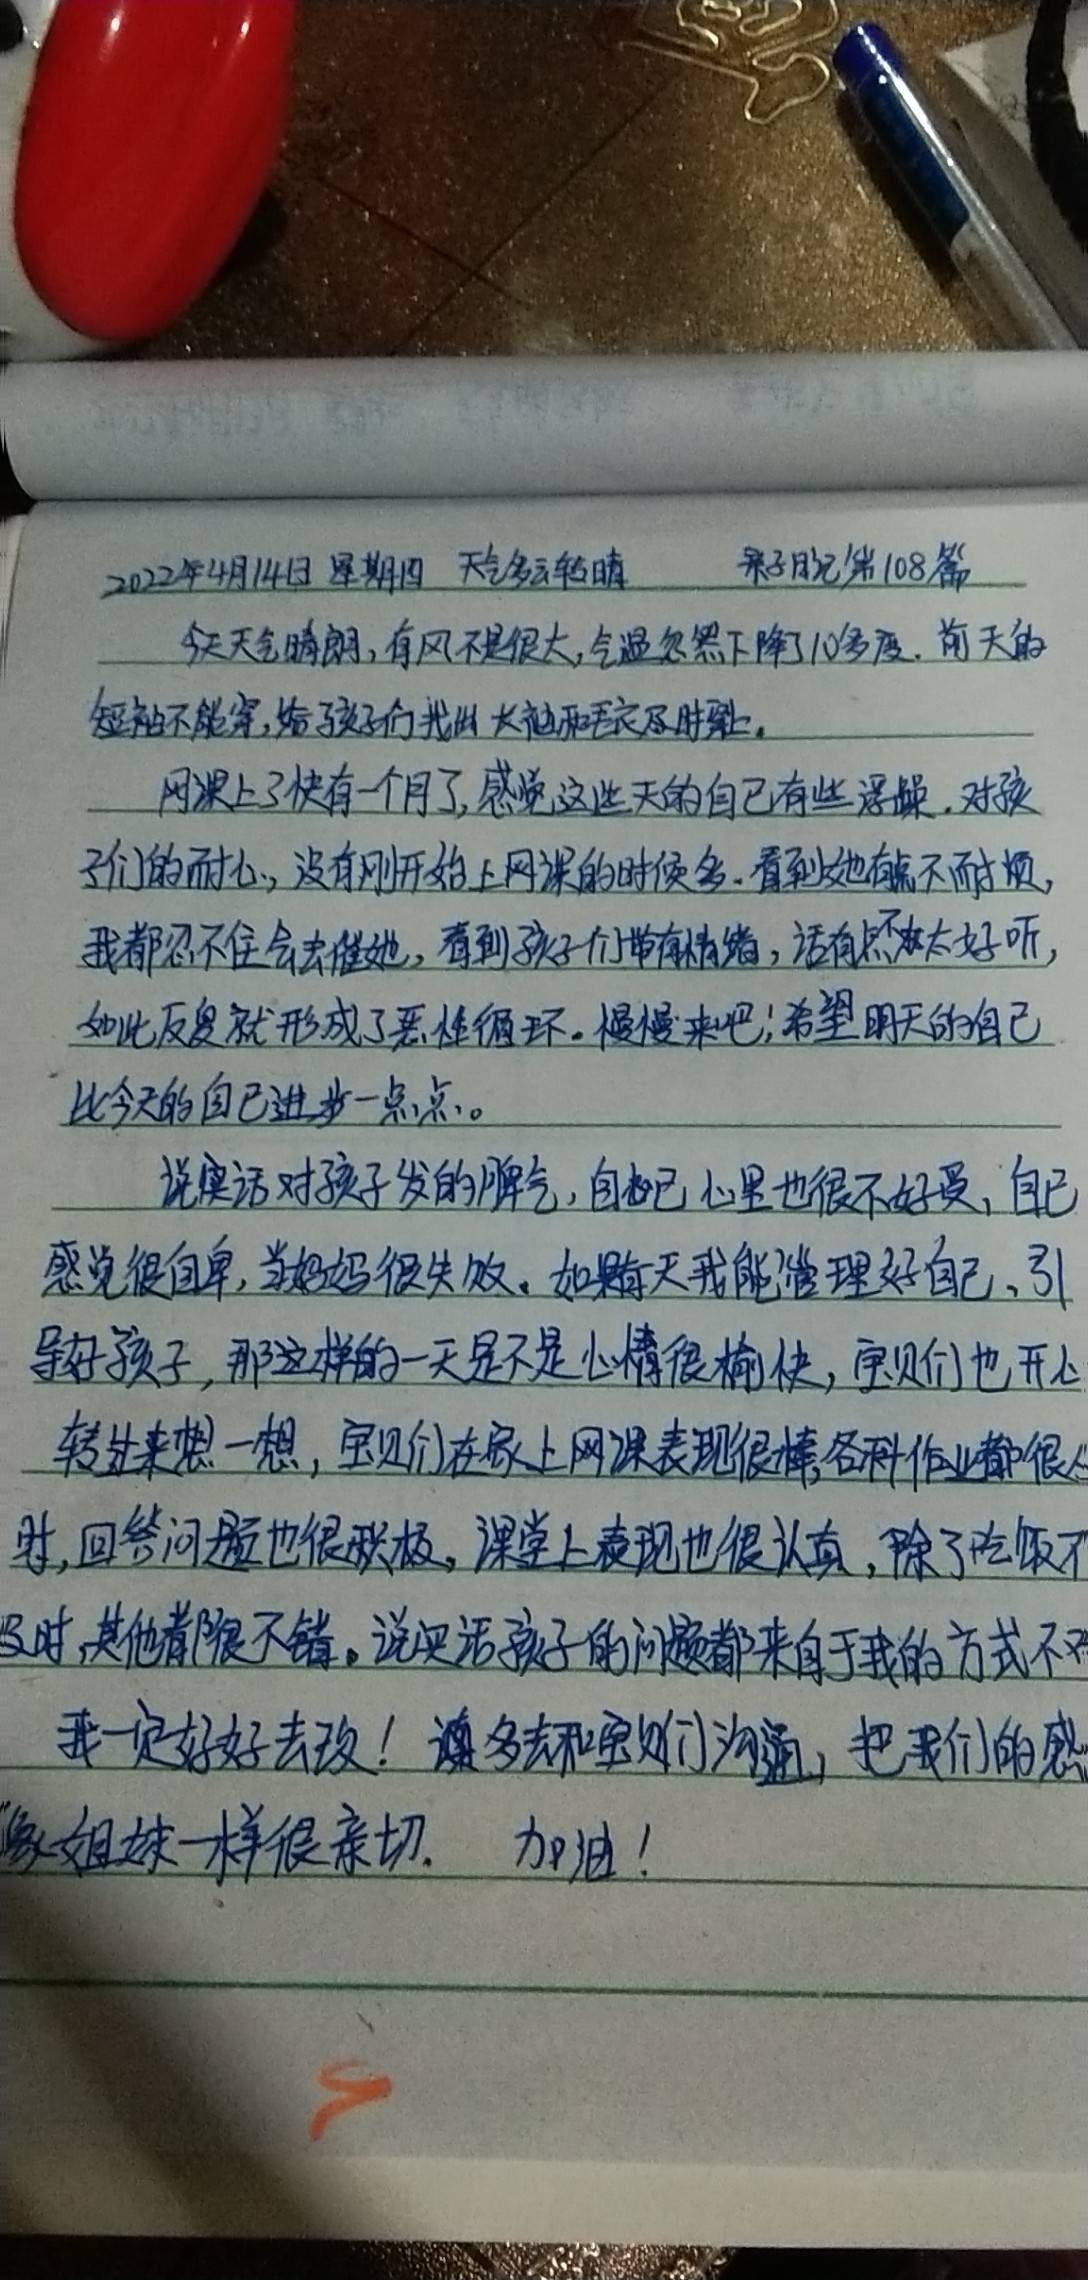 2022年4月14日 星期四 天气多云转晴 亲子日记第108篇
今天天气晴朗,有风不是很大,气温忽然下降了10多度.前天的
短袖不能穿,给孩子们找出长袖和毛衣及时
网课上了快有一个月了,感觉这些天的自己有些浮躁.对孩
子们的耐心,没有刚开始上网课的时候多.看到她有点不耐烦,
我都忍不住会去催她,看到孩子们带有情绪,话有点不太好听,
如此反复就形成了恶性循环。慢慢来吧!希望明天的自己
比今天的自己进步一点点。
说实话对孩子发的脾气,自己心里也很不好受,自己
感觉很自卑,当妈妈很失败。如果每天我能管理好自己、引
导好孩子,那这样的一天是不是心情很愉快,宝贝们也开心
转过来想一想,宝贝们在家上网课表现很棒,各科作业都很
时,回答问题也很积极。课堂上表现也很认真,除了吃饭不
及时,其他都很不错。说实话孩子的问题都来自于我的方式不
我一定好好去改!多去和宝贝们沟通,把我们的感
像姐妹一样很亲切. 加油!